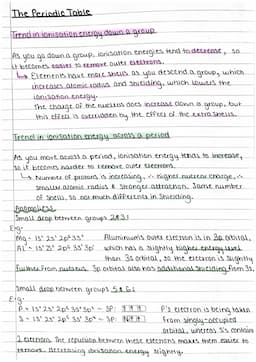 The Periodic Table
Trend in ionisation energy down a group
As you go down a group, ionisation energies tend to decrease, so
it becomes easier to remove outer electrons.
↳ Elements have more shells as you descend a group, which
increases atomic radius and shielding, which lowers the
ionisation energy.
The charge of the nucleus does increase down a group, but
this effect is overridden by the effect of the extra shells.
Trend in ionisation energy across a period
As you move across a period, ionisation energy tends to increase,
so it becomes harder to remove outer electrons.
↳ Number of protons is increasing, ∴ higher nuclear charge, ∴
smaller atomic radius & stronger attraction. Same number
of shells, so not much difference in shielding.
Anomalies
Small drop between groups 2&3!
E.g.
Mg - 1s² 2s² 2p⁶ 3s²
Aluminium's outer electron is in 3p orbital,
Al - 1s² 2s² 2p⁶ 3s² 3p¹
which has a slightly higher energy level
than 3s orbital, so the electron is slightly
further from nucleus. 3p orbital also has additional shielding from 3s.
Small drop between groups 5&6!
E.g.
P - 1s² 2s² 2p⁶ 3s² 3p³ - 3P: ↑ ↑ ↑
P's electron is being taken
S - 1s² 2s² 2p⁶ 3s² 3p⁴ - 3P: ↑↓ ↑ ↑
from singly-occupied
orbital, whereas S's contains
2 electrons. The repulsion between these electrons makes them easier to
remove, decreasing ionisation energy slightly.